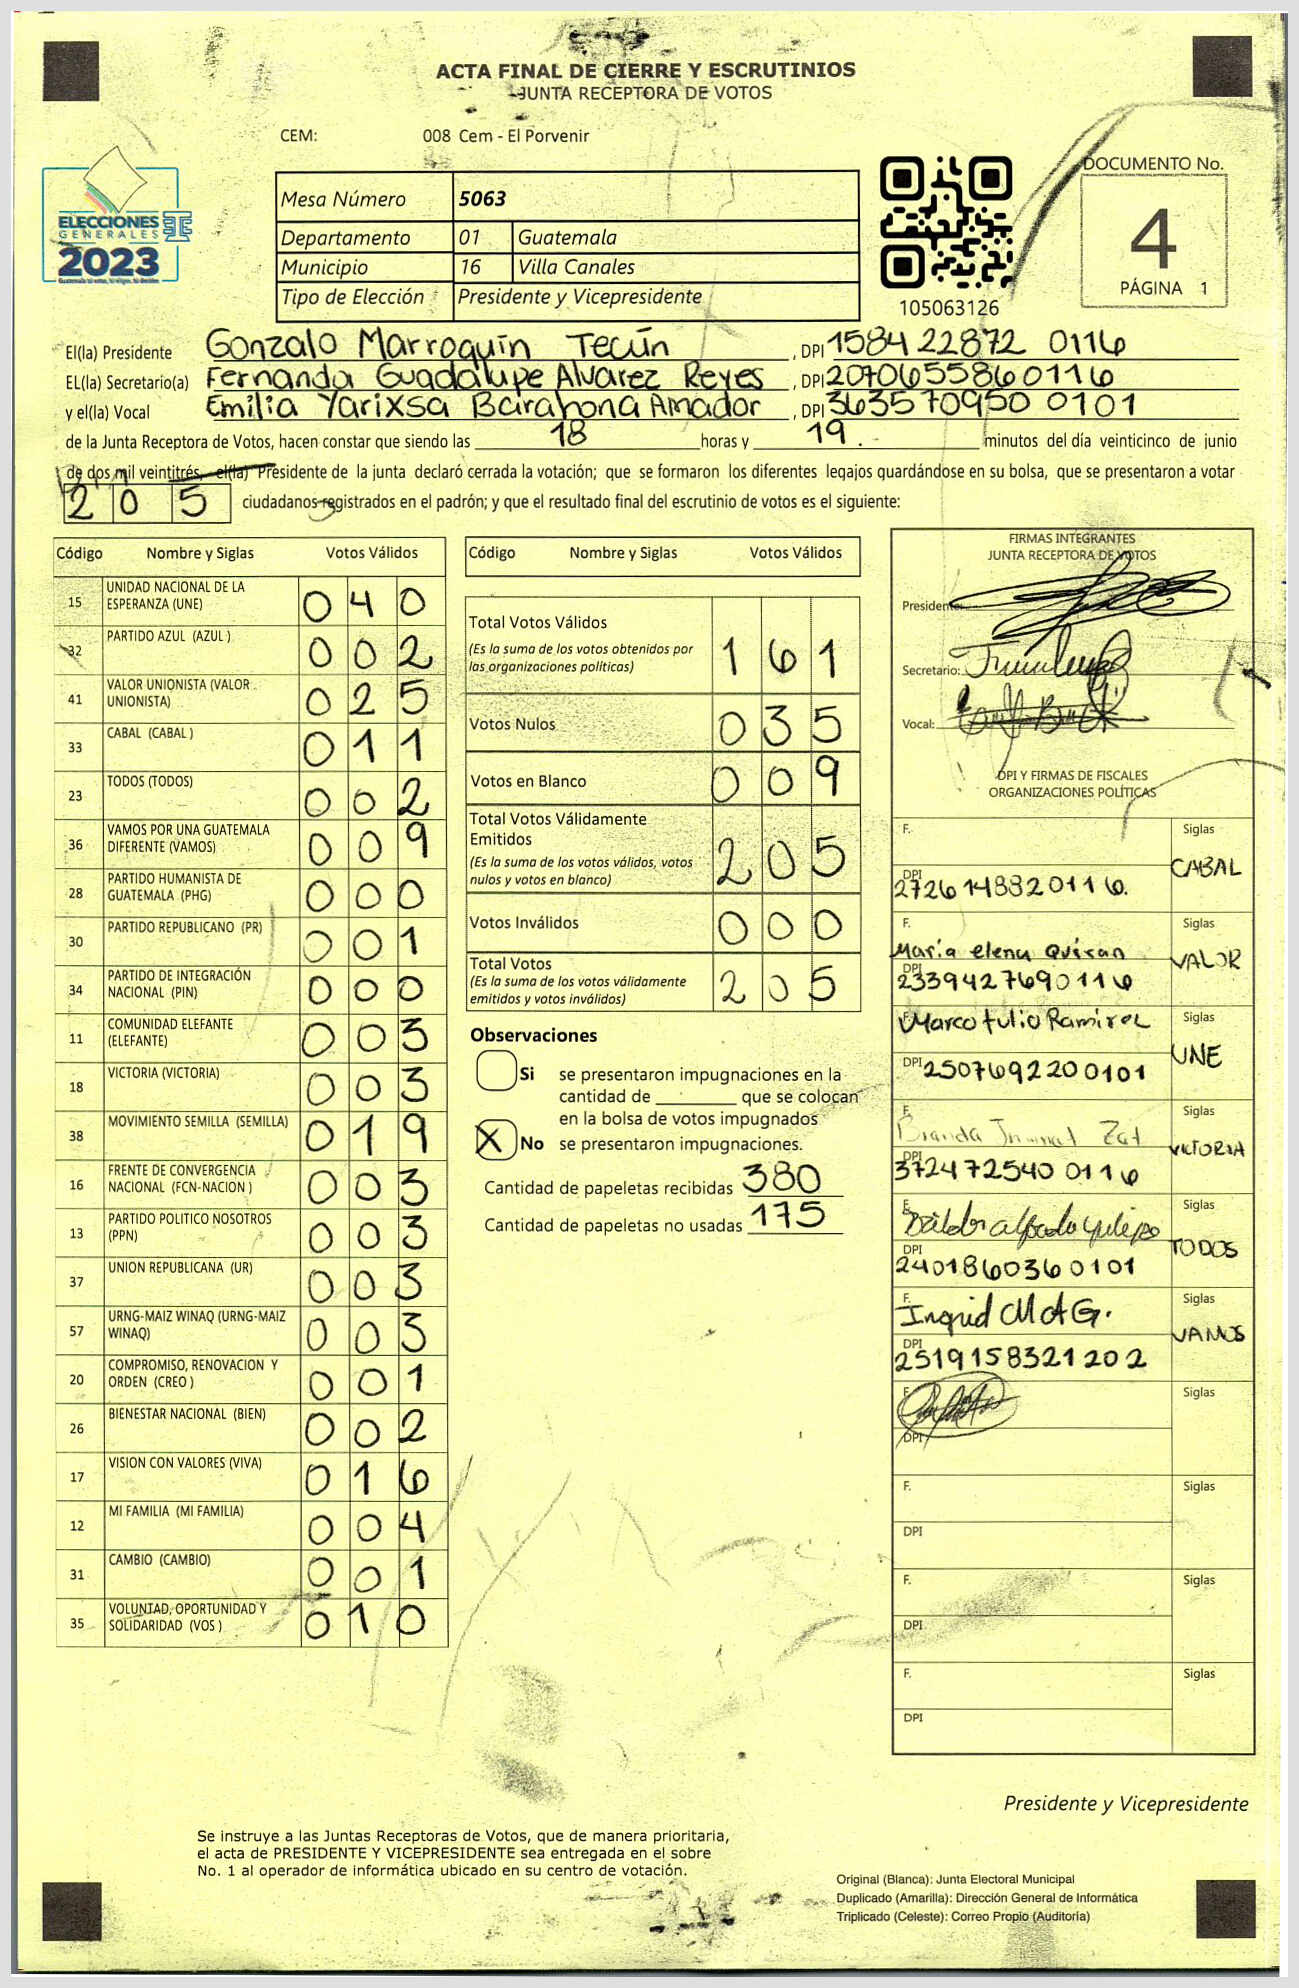 ACTA FINAL DE CIERRE Y ESCRUTINIOS
JUNTA RECEPTORA DE VOTOS
CEM: 008 Cem - El Porvenir
ELECCIONES
GENERALES
2023
Mesa Número 5063
Departamento 01 Guatemala
Municipio 16 Villa Canales
Tipo de Elección Presidente y Vicepresidente
105063126
DOCUMENTO No.
4
PÁGINA 1
El(la) Presidente Gonzalo Marroquín Tecún, DPI 1584 22872 0116
EL(la) Secretario(a) Fernanda Guadalupe Alvarez Reyes, DPI 2070655860116
y el(la) Vocal Emilia Yarixsa Barahona Amador, DPI 363570950 0101
de la Junta Receptora de Votos, hacen constar que siendo las 18 horas y 19 . minutos del día veinticinco de junio
de dos mil veintitrés, el(la) Presidente de la junta declaró cerrada la votación; que se formaron los diferentes legajos quardándose en su bolsa, que se presentaron a votar
205 ciudadanos registrados en el padrón; y que el resultado final del escrutinio de votos es el siguiente:
Código Nombre y Siglas Votos Válidos
15 UNIDAD NACIONAL DE LA ESPERANZA (UNE) 040
32 PARTIDO AZUL (AZUL ) 002
41 VALOR UNIONISTA (VALOR UNIONISTA) 025
33 CABAL (CABAL ) 011
23 TODOS (TODOS) 002
36 VAMOS POR UNA GUATEMALA DIFERENTE (VAMOS) 009
28 PARTIDO HUMANISTA DE GUATEMALA (PHG) 000
30 PARTIDO REPUBLICANO (PR) 001
34 PARTIDO DE INTEGRACIÓN NACIONAL (PIN) 000
11 COMUNIDAD ELEFANTE (ELEFANTE) 003
18 VICTORIA (VICTORIA) 003
38 MOVIMIENTO SEMILLA (SEMILLA) 019
16 FRENTE DE CONVERGENCIA NACIONAL (FCN-NACION ) 003
13 PARTIDO POLITICO NOSOTROS (PPN) 003
37 UNION REPUBLICANA (UR) 003
57 URNG-MAIZ WINAQ (URNG-MAIZ WINAQ) 003
20 COMPROMISO, RENOVACION Y ORDEN (CREO ) 001
26 BIENESTAR NACIONAL (BIEN) 002
17 VISION CON VALORES (VIVA) 016
12 MI FAMILIA (MI FAMILIA) 004
31 CAMBIO (CAMBIO) 001
35 VOLUNTAD, OPORTUNIDAD Y SOLIDARIDAD (VOS ) 010
Código Nombre y Siglas Votos Válidos
Total Votos Válidos
(Es la suma de los votos obtenidos por
las organizaciones políticas) 161
Votos Nulos 035
Votos en Blanco 009
Total Votos Válidamente
Emitidos
(Es la suma de los votos válidos, votos
nulos y votos en blanco) 205
Votos Inválidos 000
Total Votos
(Es la suma de los votos válidamente
emitidos y votos inválidos) 205
Observaciones
Si se presentaron impugnaciones en la
cantidad de ________ que se colocan
en la bolsa de votos impugnados
X No se presentaron impugnaciones.
Cantidad de papeletas recibidas 380
Cantidad de papeletas no usadas 175
FIRMAS INTEGRANTES
JUNTA RECEPTORA DE VOTOS
Presidente:
Secretario:
Vocal:
DPI Y FIRMAS DE FISCALES
ORGANIZACIONES POLÍTICAS
F. Siglas
DPI 2726148820116. CABAL
F. Maria elena Siglas
DPI 2339427690116 VALOR
F. Marco tulio Ramirez Siglas
DPI 2507692200101 UNE
F. Siglas
DPI 372472540 0116 VICTORIA
F. Siglas
DPI 2401860360101 TODOS
F. Ingrid M A G. Siglas
DPI 2519158321202 VAMOS
F. Siglas
DPI
F. Siglas
DPI
F. Siglas
DPI
F. Siglas
DPI
Presidente y Vicepresidente
Se instruye a las Juntas Receptoras de Votos, que de manera prioritaria,
el acta de PRESIDENTE Y VICEPRESIDENTE sea entregada en el sobre
No. 1 al operador de informática ubicado en su centro de votación.
Original (Blanca): Junta Electoral Municipal
Duplicado (Amarilla): Dirección General de Informática
Triplicado (Celeste): Correo Propio (Auditoría)